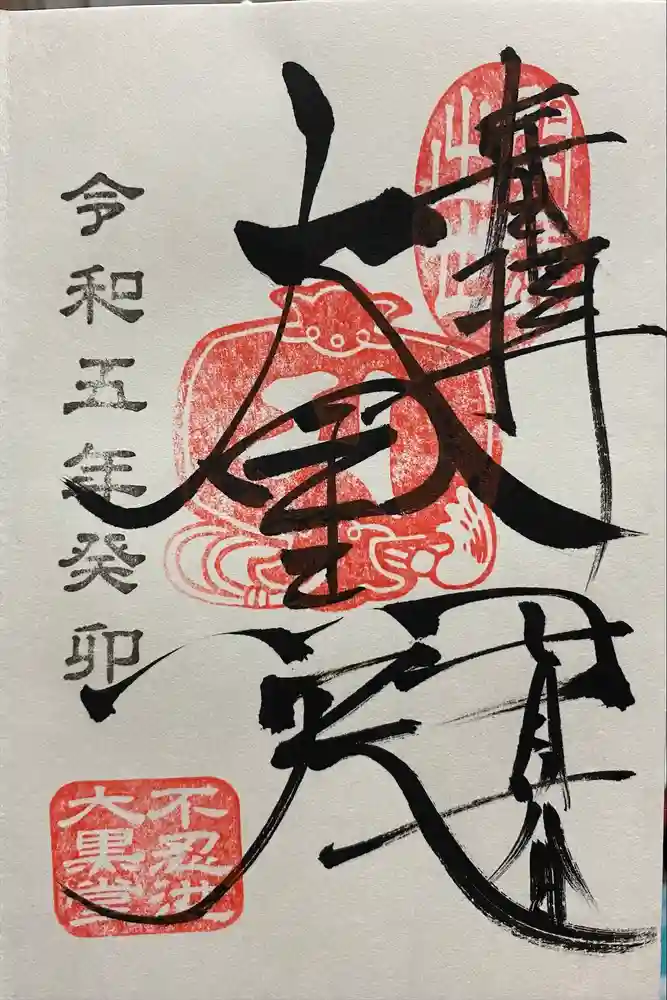 奉拝
大黒天
令和五年癸卯
不忍池
大黒堂